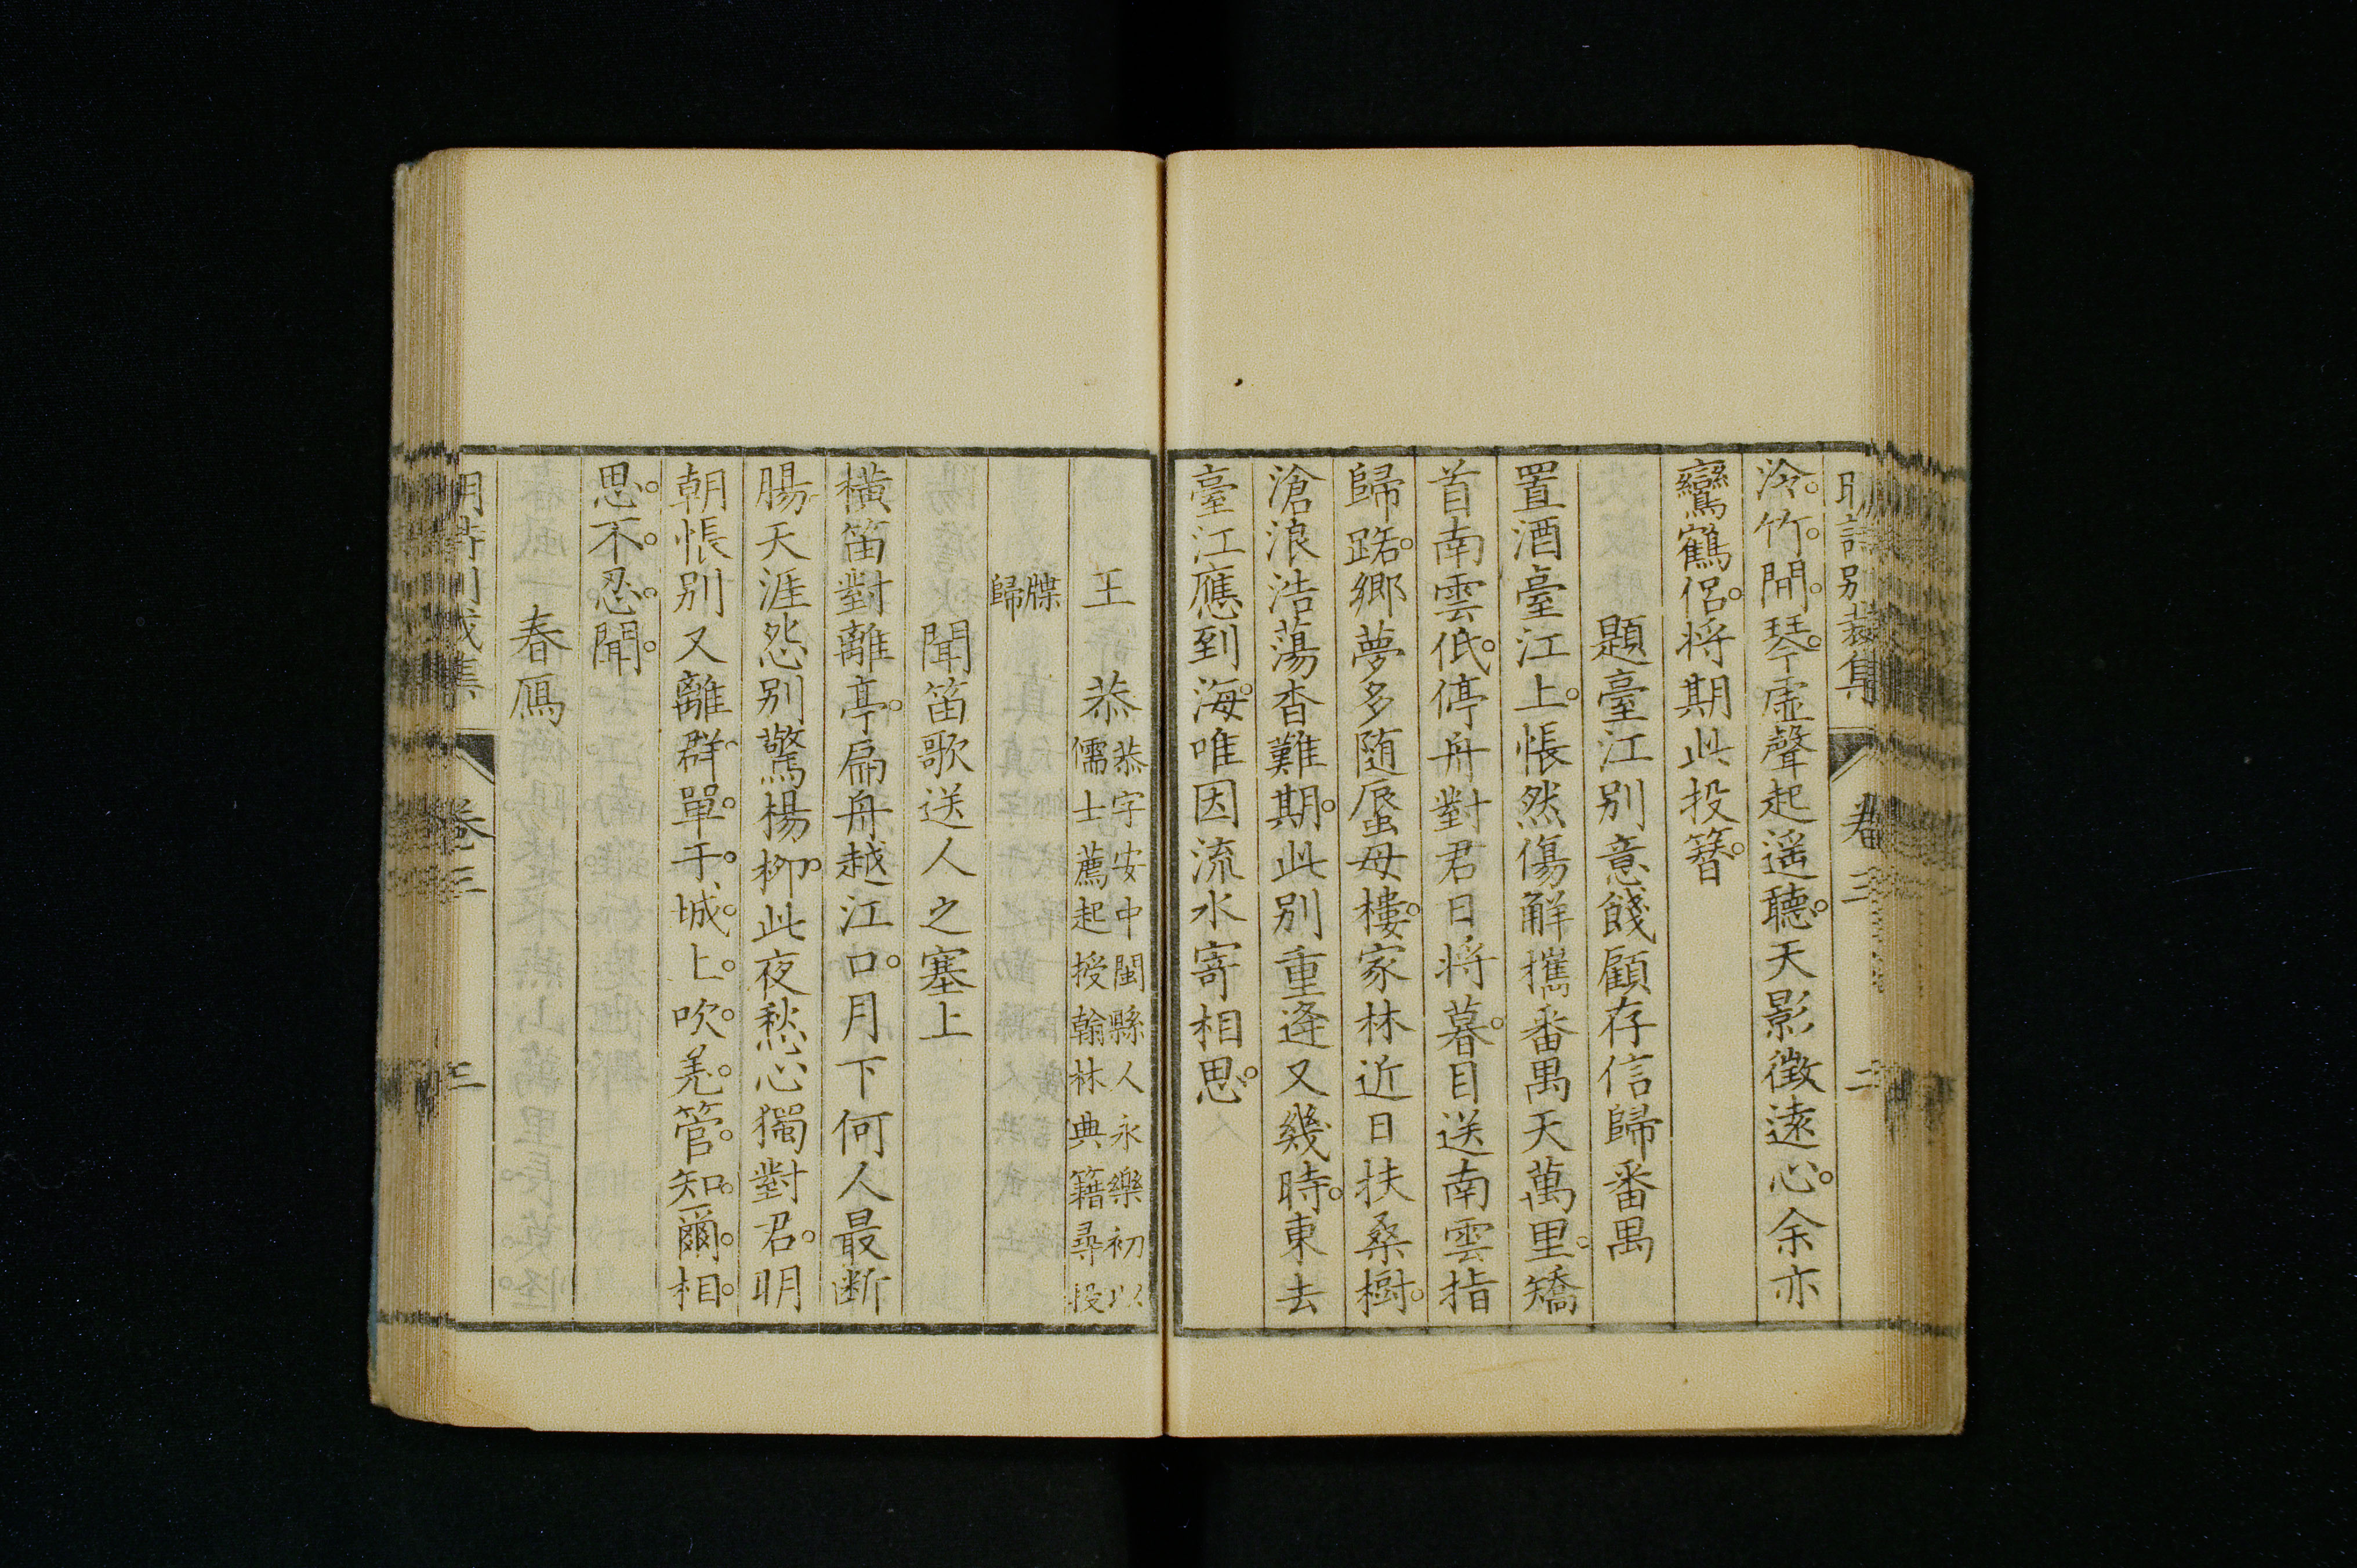 明詩別裁集 卷三 二
泠竹閒琴虛聲起遥聽天影徴遠心余亦
鸞鶴侶将期此投簪
題臺江別意餞顧存信歸番禺
置酒臺江上悵然傷觧攜番禺天萬里矯
首南雲低停舟對君日将暮目送南雲指
歸路鄉夢多随蜃母樓家林近日扶桑樹
滄浪浩蕩杳難期此別重逢又幾時東去
臺江應到海唯因流水寄相思
王恭 恭字安中閩縣人永樂初以
儒士薦起授翰林典籍尋投
牒
歸
聞笛歌送人之塞上
橫笛對離亭扁舟越江口月下何人最断
腸天涯怨別驚楊柳此夜愁心獨對君明
朝悵別又離群單于城上吹羌管知爾相
思不忍聞
春鴈
明詩別裁集 卷三 三